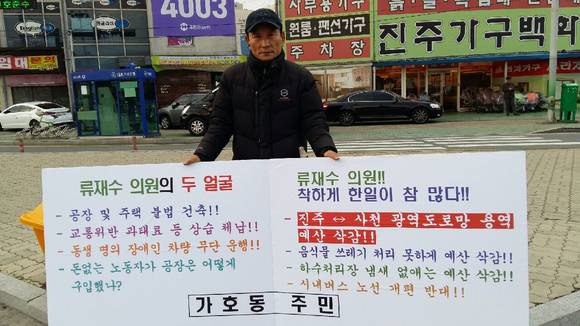 4003
사무용가구
원룸·팬션가구
주 차 장
진주가구백화
류재수 의원의 두 얼굴
- 공장 및 주택 불법 건축!!
- 교통위반 과태료 등 상습 체납!!
- 동생 명의 장애인 차량 무단 운행!!
- 돈없는 노동자가 공장은 어떻게
구입했나?
류재수 의원!!
착하게 한일이 참 많다!!
- 진주 ↔ 사천 광역도로망 용역
예산 삭감!!
- 음식물 쓰레기 처리 못하게 예산 삭감!!
- 하수처리장 냄새 없애는 예산 삭감!!
- 시내버스 노선 개편 반대!!
가호동 주민